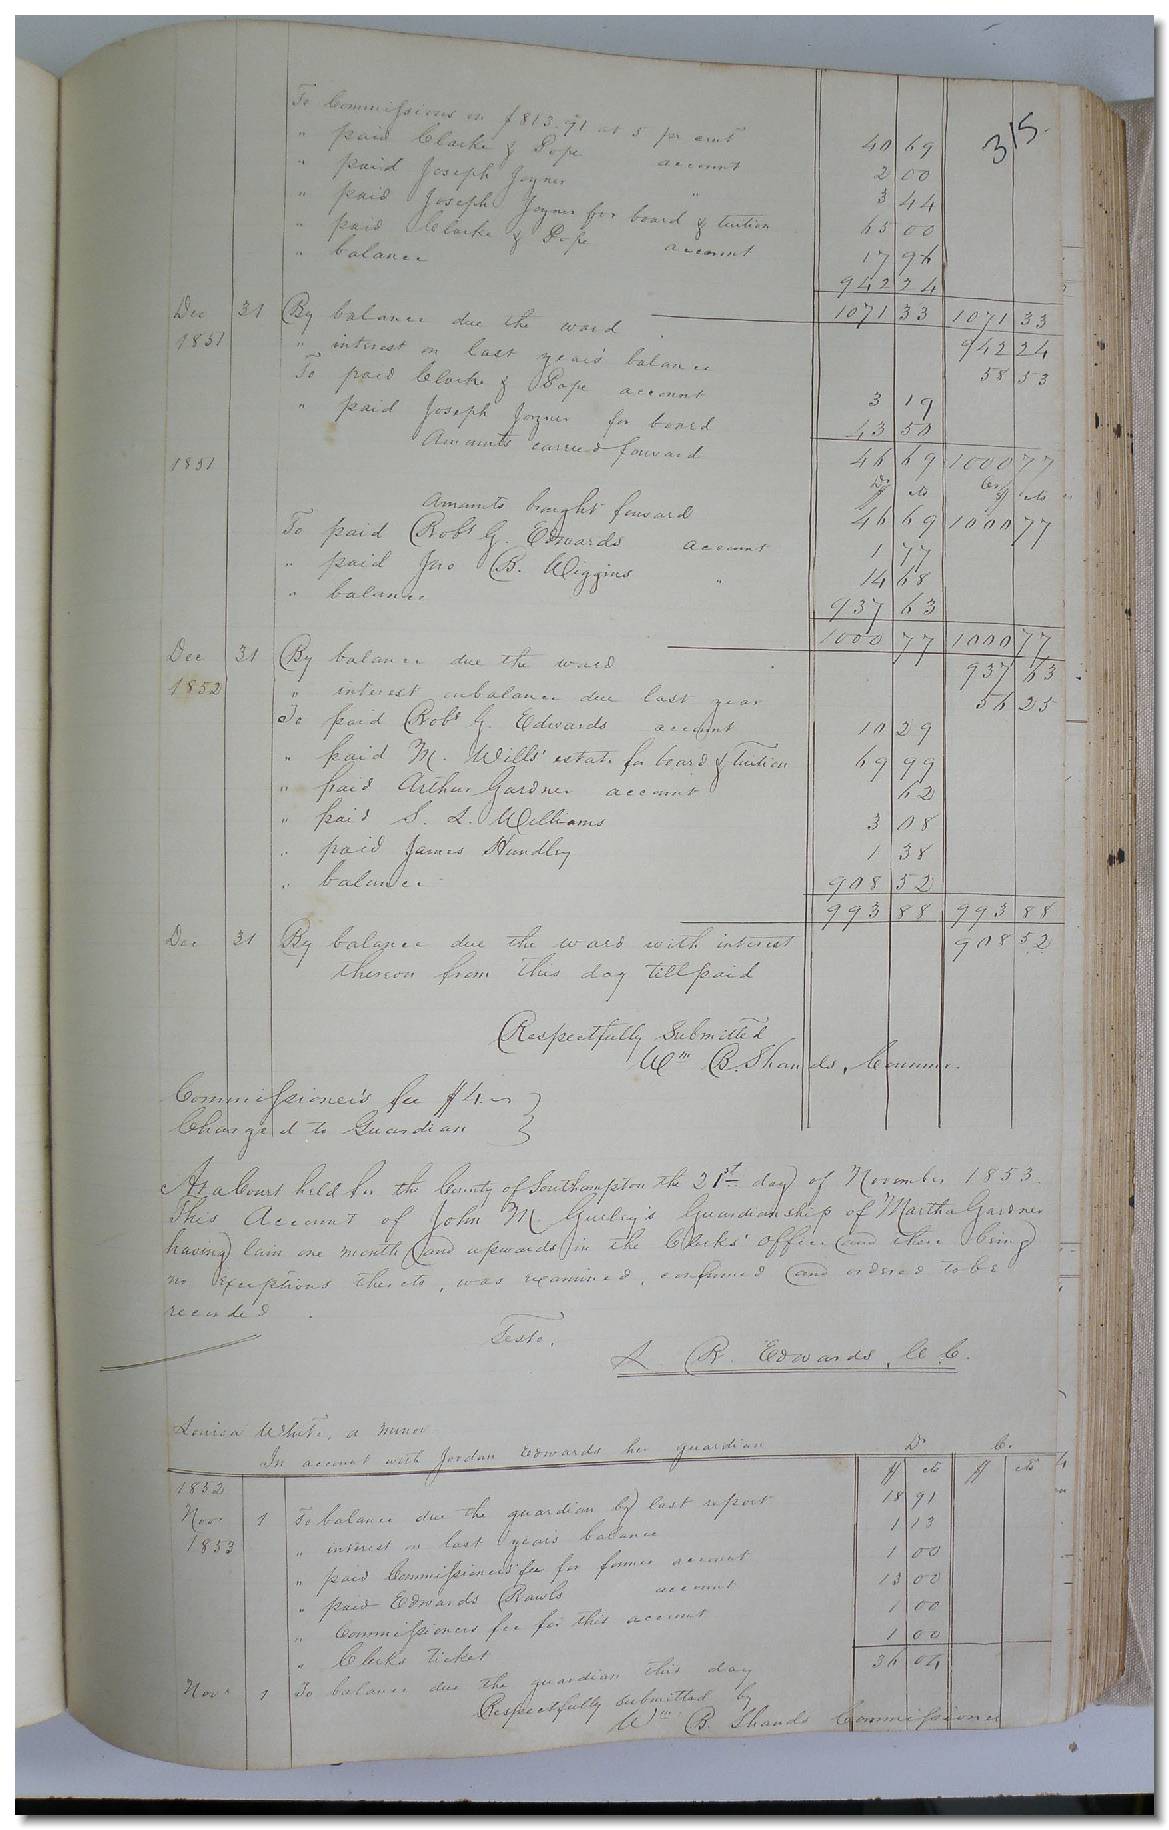 315
To Commissions on $813.91 at 5 per cent 40 69
" paid Clarke & Pope account 2 00
" paid Joseph Joyner " 3 44
" paid Joseph Joyner for board & tuition 65 00
" paid Clarke & Pope account 17 96
" balance 942 24
1071 33 1071 33
Dec 31 By balance due the ward 942 24
1851 " interest on last years balance 58 53
To paid Clarke & Pope account 3 19
" paid Joseph Joyner for board 43 50
Amounts carried forward 46 69 1000 77
1851 Dr Cr
$ cts $ cts
Amounts brought forward 46 69 1000 77
To paid Robt G. Edwards account 1 77
" paid Jno B. Wiggins " 14 68
" balance 937 63
1000 77 1000 77
Dec 31 By balance due the ward 937 63
1852 " interest on balance due last year 56 25
To paid Robt G. Edwards account 10 29
" paid M. Wills' estate for board & Tuition 69 99
" paid Arthur Gardner account 62
" paid S. L. Williams 3 08
" paid James Hundley 1 38
" balance 908 52
993 88 993 88
Dec 31 By balance due the ward with interest 908 52
thereon from this day till paid
Respectfully Submitted
Wm B. Shands, Commr.
Commissioner's fee $4.
Charged to Guardian
At a Court held for the County of Southampton the 21st day of November 1853.
This Account of John M. Gurley's Guardianship of Martha Gardner
having lain one month and upwards in the Clerks' Office and there being
no exceptions thereto, was examined, confirmed and ordered to be
recorded.
Teste,
L. R. Edwards, C. C.
Louisa White, a minor
In account with Jordan Edwards her guardian Dr Cr
1852 $ cts $ cts
Nov 1 To balance due the guardian by last report 18 91
1853 " interest on last years balance 1 13
" paid Commissioners fee for former account 1 00
" paid Edwards Rawls account 13 00
" Commissioners fee for this account 1 00
" Clerks ticket 1 00
Nov 1 To balance due the guardian this day 36 04
Respectfully submitted by
Wm B. Shands Commissioner